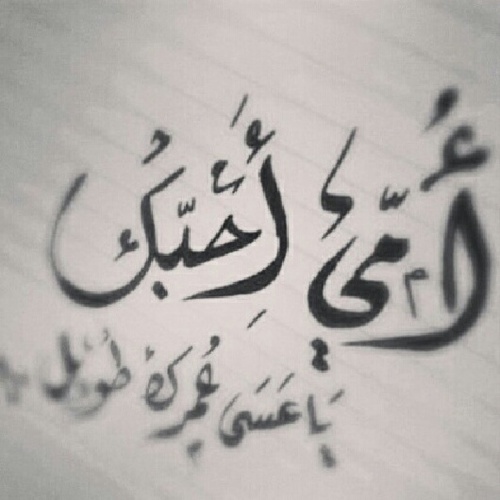 أُمّي أَحبّكُ
يَا عَسَى عُمرِك طُويل